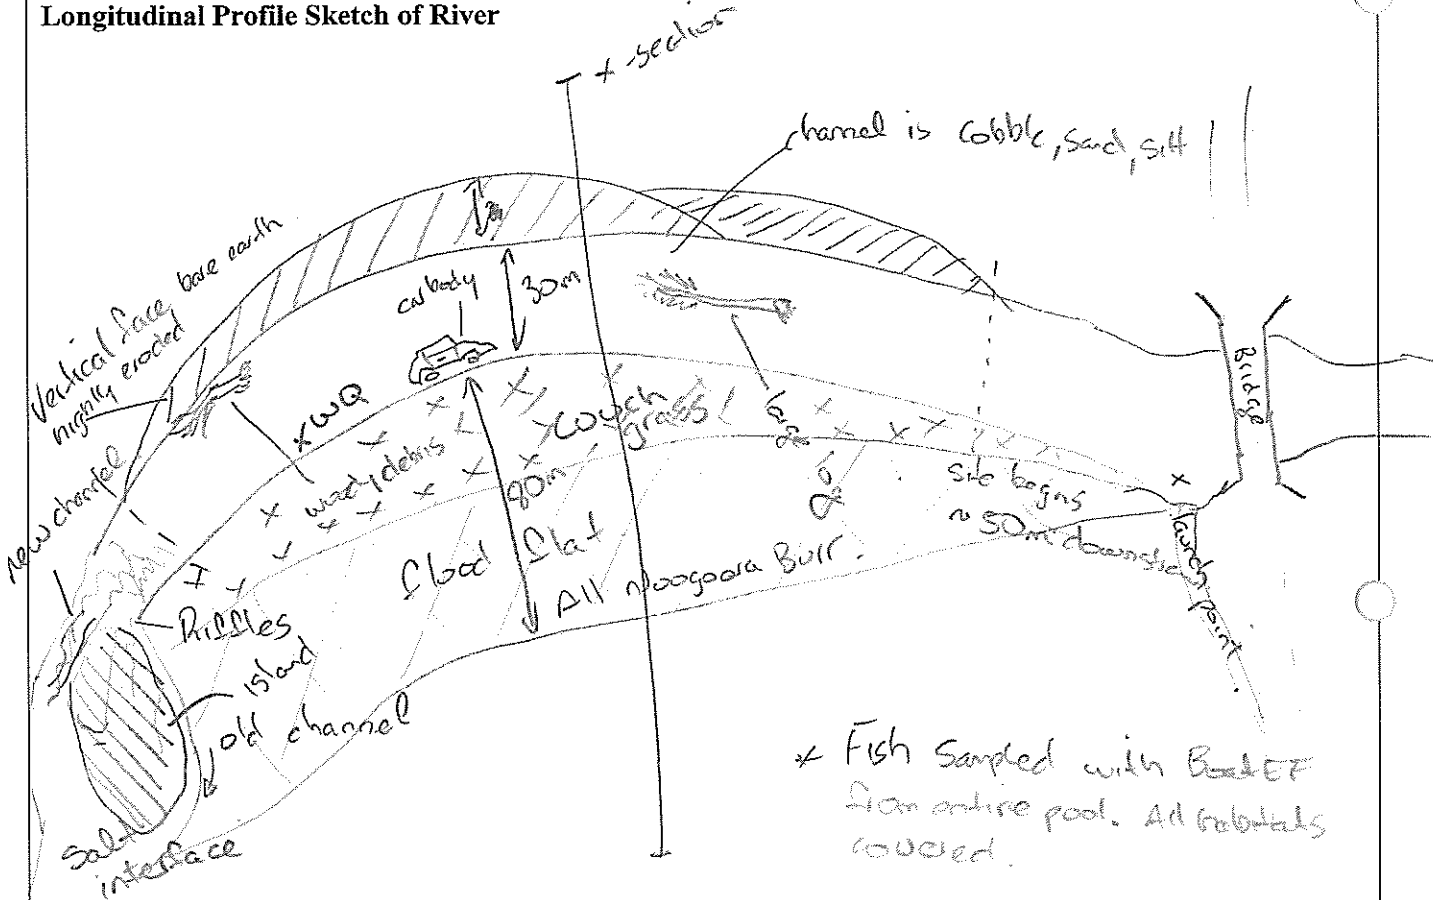 Longitudinal Profile Sketch of River
x-section
channel is cobble, sand, silt
Vertical face, bare earth
highly eroded
carbody
30m
Bridge
x WQ
couch
grass
woody debris
large
log
new channel
80m
flood flat
All Noogoora Burr.
site begins
~ 50m downstream
launch point
Riffles
island
old channel
Salt
interface
* Fish Sampled with BoatEF
from entire pool. All habitats
covered.